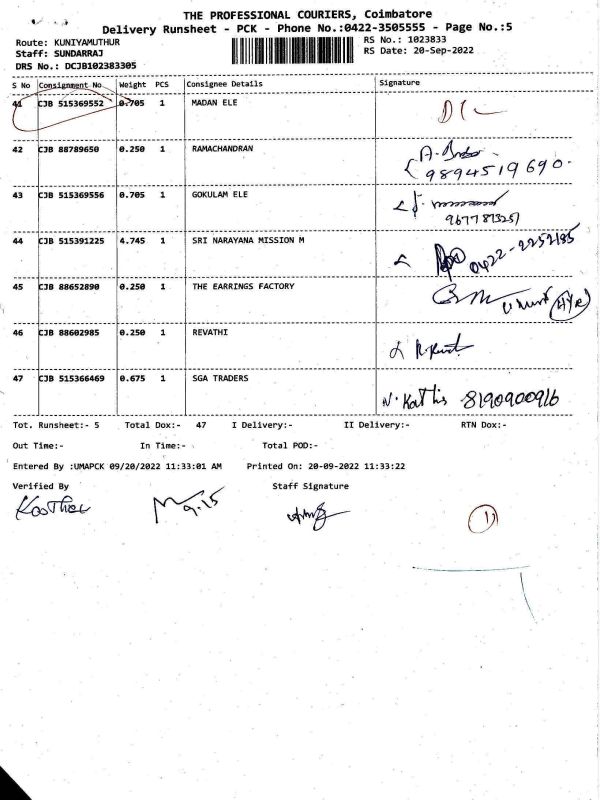 THE PROFESSIONAL COURIERS, Coimbatore
Delivery Runsheet - PCK - Phone No.:0422-3505555 - Page No.:5
Route: KUNIYAMUTHUR RS No.: 1023833
Staff: SUNDARRAJ RS Date: 20-Sep-2022
DRS No.: DCJB102383305
S No Consignment No Weight PCS Consignee Details Signature
41 CJB 515369552 0.705 1 MADAN ELE
42 CJB 88789650 0.250 1 RAMACHANDRAN
9894519690.
43 CJB 515369556 0.705 1 GOKULAM ELE
44 CJB 515391225 4.745 1 SRI NARAYANA MISSION M 0422-2252185
45 CJB 88652890 0.250 1 THE EARRINGS FACTORY
46 CJB 88602985 0.250 1 REVATHI
47 CJB 515366469 0.675 1 SGA TRADERS
8190900916
Tot. Runsheet:- 5 Total Dox:- 47 I Delivery:- II Delivery:- RTN Dox:-
Out Time:- In Time:- Total POD:-
Entered By :UMAPCK 09/20/2022 11:33:01 AM Printed On: 20-09-2022 11:33:22
Verified By Staff Signature
9.15